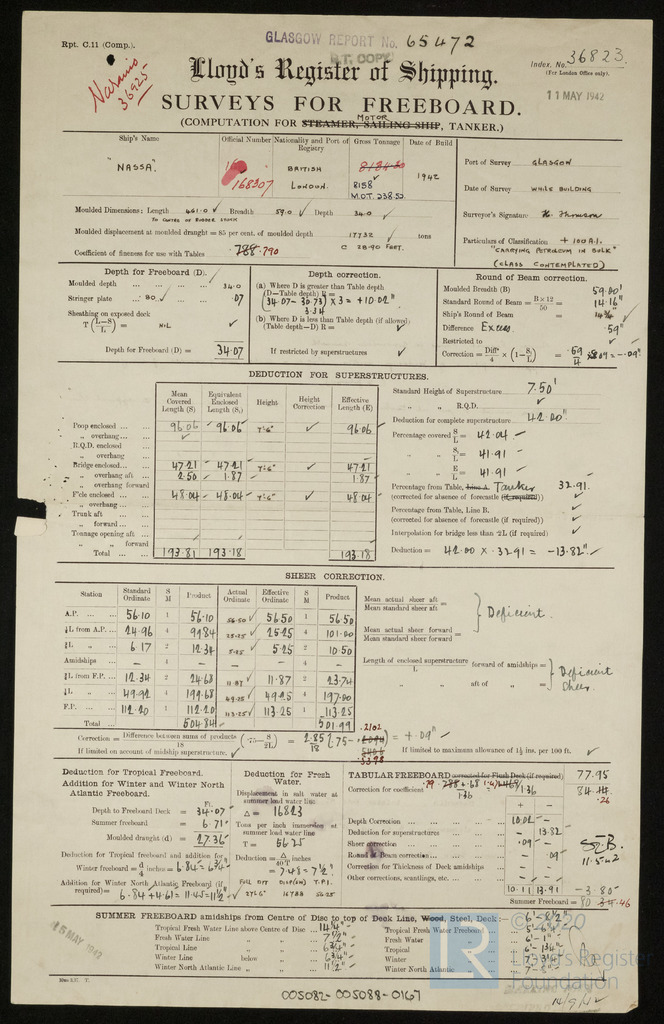 Rpt. C.11 (Comp.).
GLASGOW REPORT No. 65472
Index. No. 36823
(For London Office only).
Lloyd's Register of Shipping.
11 MAY 1942
SURVEYS FOR FREEBOARD.
(COMPUTATION FOR STEAMER, SAILING SHIP, MOTOR TANKER.)
Ship's Name
Official Number
Nationality and Port of Registry
Gross Tonnage
Date of Build
"NASSA".
168307
BRITISH
LONDON.
8158
1942
Port of Survey GLASGOW
Date of Survey WHILE BUILDING
Surveyor's Signature
Particulars of Classification + 100 A.1.
"CARRYING PETROLEUM IN BULK"
(CLASS CONTEMPLATED)
Moulded Dimensions: Length 461.0 Breadth 59.0 Depth 34.0
Moulded displacement at moulded draught = 85 per cent. of moulded depth 17732 tons
Coefficient of fineness for use with Tables .790
Depth for Freeboard (D).
Moulded depth 34.0
Stringer plate .80 .07
Sheathing on exposed deck
T (L-S/L) = NIL
Depth for Freeboard (D) = 34.07
Depth correction.
(a) Where D is greater than Table depth
(D—Table depth) R =
(34.07 - 30.73) × 3 = +10.02"
3.34
(b) Where D is less than Table depth (if allowed)
(Table depth—D) R =
If restricted by superstructures
Round of Beam correction.
Moulded Breadth (B) 59.00'
Standard Round of Beam = B×12/50 = 14.16"
Ship's Round of Beam = 14¾"
Difference Excess .59"
Restricted to
Correction = Diff/4 × (1—S₁/L) = .59/4 × .5809 = -.09"
DEDUCTION FOR SUPERSTRUCTURES.
Mean Covered Length (S)
Equivalent Enclosed Length (S₁)
Height
Height Correction
Effective Length (E)
Poop enclosed 96.06 96.06 7'-6" 96.06
„ overhang
R.Q.D. enclosed
„ overhang
Bridge enclosed 47.21 47.21 7'-6" 47.21
„ overhang aft 2.50 1.87 1.87
„ overhang forward
F'cle enclosed 48.04 48.04 7'-6" 48.04
„ overhang
Trunk aft
„ forward
Tonnage opening aft
„ „ forward
Total 193.81 193.18 193.18
Standard Height of Superstructure 7.50'
„ „ R.Q.D.
Deduction for complete superstructure 42.00"
Percentage covered S/L = 42.04
„ „ S₁/L = 41.91
„ „ E/L = 41.91
Percentage from Table, Line A. Tanker 32.91.
(corrected for absence of forecastle (if required))
Percentage from Table, Line B.
(corrected for absence of forecastle (if required))
Interpolation for bridge less than ·2L (if required)
Deduction = 42.00 × .3291 = -13.82"
SHEER CORRECTION.
Station
Standard Ordinate
S M
Product
Actual Ordinate
Effective Ordinate
S M
Product
A.P. 56.10 1 56.10 56.50 56.50 1 56.50
⅙L from A.P. 24.96 4 99.84 25.25 25.25 4 101.00
⅓L „ 6.17 2 12.34 5.25 5.25 2 10.50
Amidships - 4 - - 4 -
⅓L from F.P. 12.34 2 24.68 11.87 11.87 2 23.74
⅙L „ 49.92 4 199.68 49.25 49.25 4 197.00
F.P. 112.20 1 112.20 113.25 113.25 1 113.25
Total 504.84 501.99
Mean actual sheer aft / Mean standard sheer aft =
Mean actual sheer forward / Mean standard sheer forward =
Deficient.
Length of enclosed superstructure / L forward of amidships =
„ „ aft of „ =
Deficient Sheer.
Correction = Difference between sums of products / 18 (·75— S/2L) = 2.85/18 (.75- .2102) = +.09"
If limited on account of midship superstructure.
If limited to maximum allowance of 1½ ins. per 100 ft.
Deduction for Tropical Freeboard.
Addition for Winter and Winter North Atlantic Freeboard.
Ft.
Depth to Freeboard Deck = 34.07
Summer freeboard = 6.71
Moulded draught (d) = 27.36
Deduction for Tropical freeboard and addition for Winter freeboard = d/4 inches = 6.84 = 6¾"
Addition for Winter North Atlantic Freeboard (if required) = 6.84 + 4.61 = 11.45 = 11½"
Deduction for Fresh Water.
Displacement in salt water at summer load water line
Δ = 16823
Tons per inch immersion at summer load water line
T = 56.25
Deduction = Δ/40T inches
= 7.48 = 7½"
TABULAR FREEBOARD corrected for Flush Deck (if required) 77.95
Correction for coefficient .79+.68/1.36 84.26
+ —
Depth Correction 10.02 -
Deduction for superstructures - 13.82
Sheer correction .09 -
Round of Beam correction - .09
Correction for Thickness of Deck amidships
Other corrections, scantlings, etc.
10.11 13.91 -3.80
Summer Freeboard = 80.46
11.5.42
SUMMER FREEBOARD amidships from Centre of Disc to top of Deck Line, Wood, Steel, Deck:— 6'-8½"
Tropical Fresh Water Line above Centre of Disc 14¼"
Fresh Water Line „ „ 7½"
Tropical Line „ „ 6¾"
Winter Line below „ 6¾"
Winter North Atlantic Line „ „ 11½"
Tropical Fresh Water Freeboard
Fresh Water „ 6'-1"
Tropical „ 6'-1¾"
Winter „ 7'-3¼"
Winter North Atlantic „
15 MAY 1942
© 2020
LR
Lloyd's Register
Foundation
005082-005088-0167